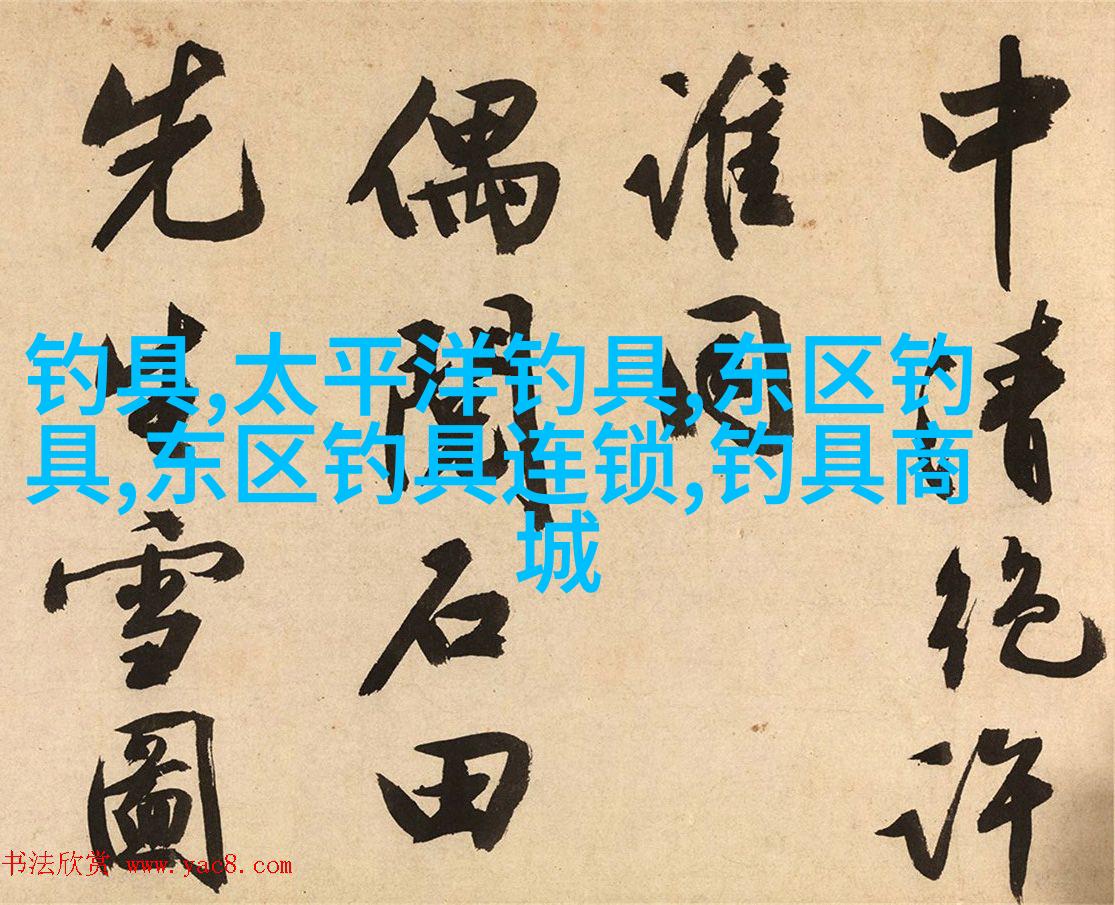 中情絶許
誰同
偶閲石田
先生雪圖
钓具,太平洋钓具,东区钓
具,东区钓具连锁,钓具商
城
书法欣赏 www.yac8.com